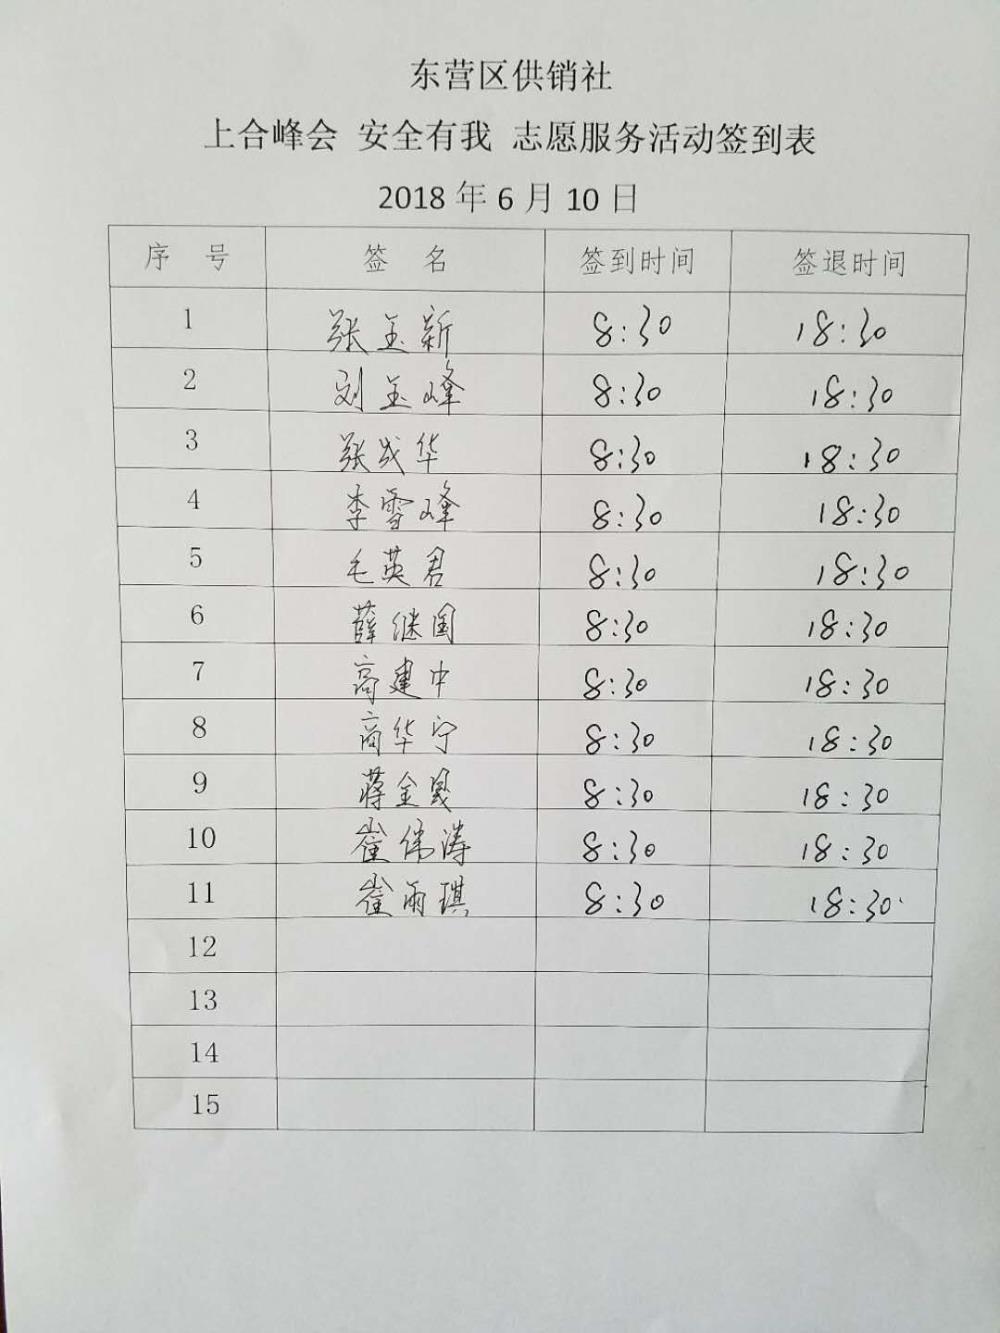 东营区供销社
上合峰会 安全有我 志愿服务活动签到表
2018 年 6 月 10 日
序 号 签 名 签到时间 签退时间
1 张玉新 8:30 18:30
2 刘玉峰 8:30 18:30
3 张成华 8:30 18:30
4 李雪峰 8:30 18:30
5 毛英君 8:30 18:30
6 薛继国 8:30 18:30
7 高建中 8:30 18:30
8 商华宁 8:30 18:30
9 蒋金晟 8:30 18:30
10 崔伟涛 8:30 18:30
11 崔雨琪 8:30 18:30
12
13
14
15